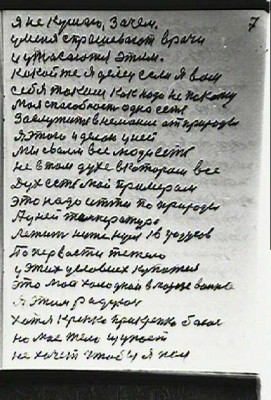 7
Я не кушаю, Зачем.
у меня спрашивают врачи
и ужасаются этим.
Какой же я делец если я вам
себя таким как надо не покажу
Моя способность одно есть
Заслужить внимание от природы
Я этого и делаю у ней
Мы своим все люди есть
не в том духе в котором все
Дух есть мой примером
это надо идти по природе
А у ней температура
летит ниже нуля 16 градусов
По первости тяжело
у этих условиях купаться
это моя холодной в морозе ванна
Я этим радуюсь
Хотя крепко прикрепко болею
но мое тело
не хочет чтобы я